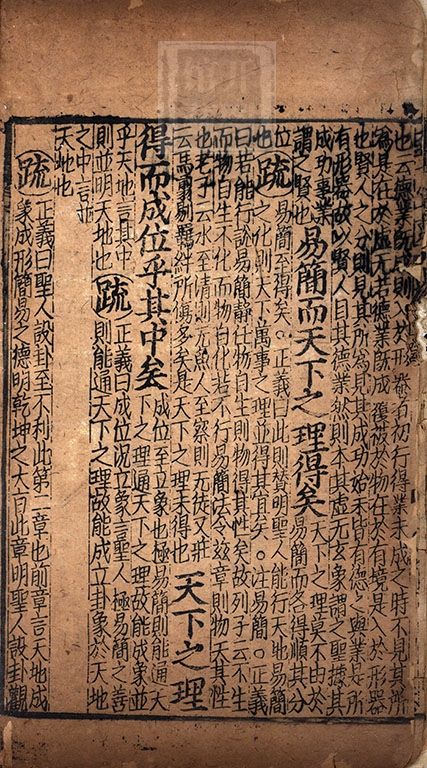 也云德業既成則入於形器者初行得業未成之時不見其所
為是在於虛无若德業既成覆被於物在於有境是入於形器
也賢人之分則見其所為見其成功始末皆有德之與業是所
有形器故以賢人目其德業然則本其虛无玄象謂之聖據其
成功事業謂之賢也
易簡而天下之理得矣
天下之理莫不由於易簡而各得順其分
位也
疏
易簡至得矣。正義曰此則贊明聖人能行天地易簡
之化則天下萬事之理並得其宜矣。注易簡。正義
曰若能行說易簡靜任物自生則物得其性矣故列子云不生
而物自生不化而物自化若不行易簡法令茲章則物失其性
也老子云水至清則无魚人至察則无徒又莊
云馬翦剔羈絆所傷多矣是天下之理未得也
天下之理
得而成位乎其中矣
成位至立象也極易簡則能通天
下之理通天下之理故能成象並
乎天地言其中
則並明天地也
疏
正義曰成位況立象言聖人極易簡之善
則能通天下之理故能成立卦象於天地
之中言並
天地也
疏
正義曰聖人設卦至不利此第二章也前章言天地成
象成形簡易之德明乾坤之大旨此章明聖人設卦觀